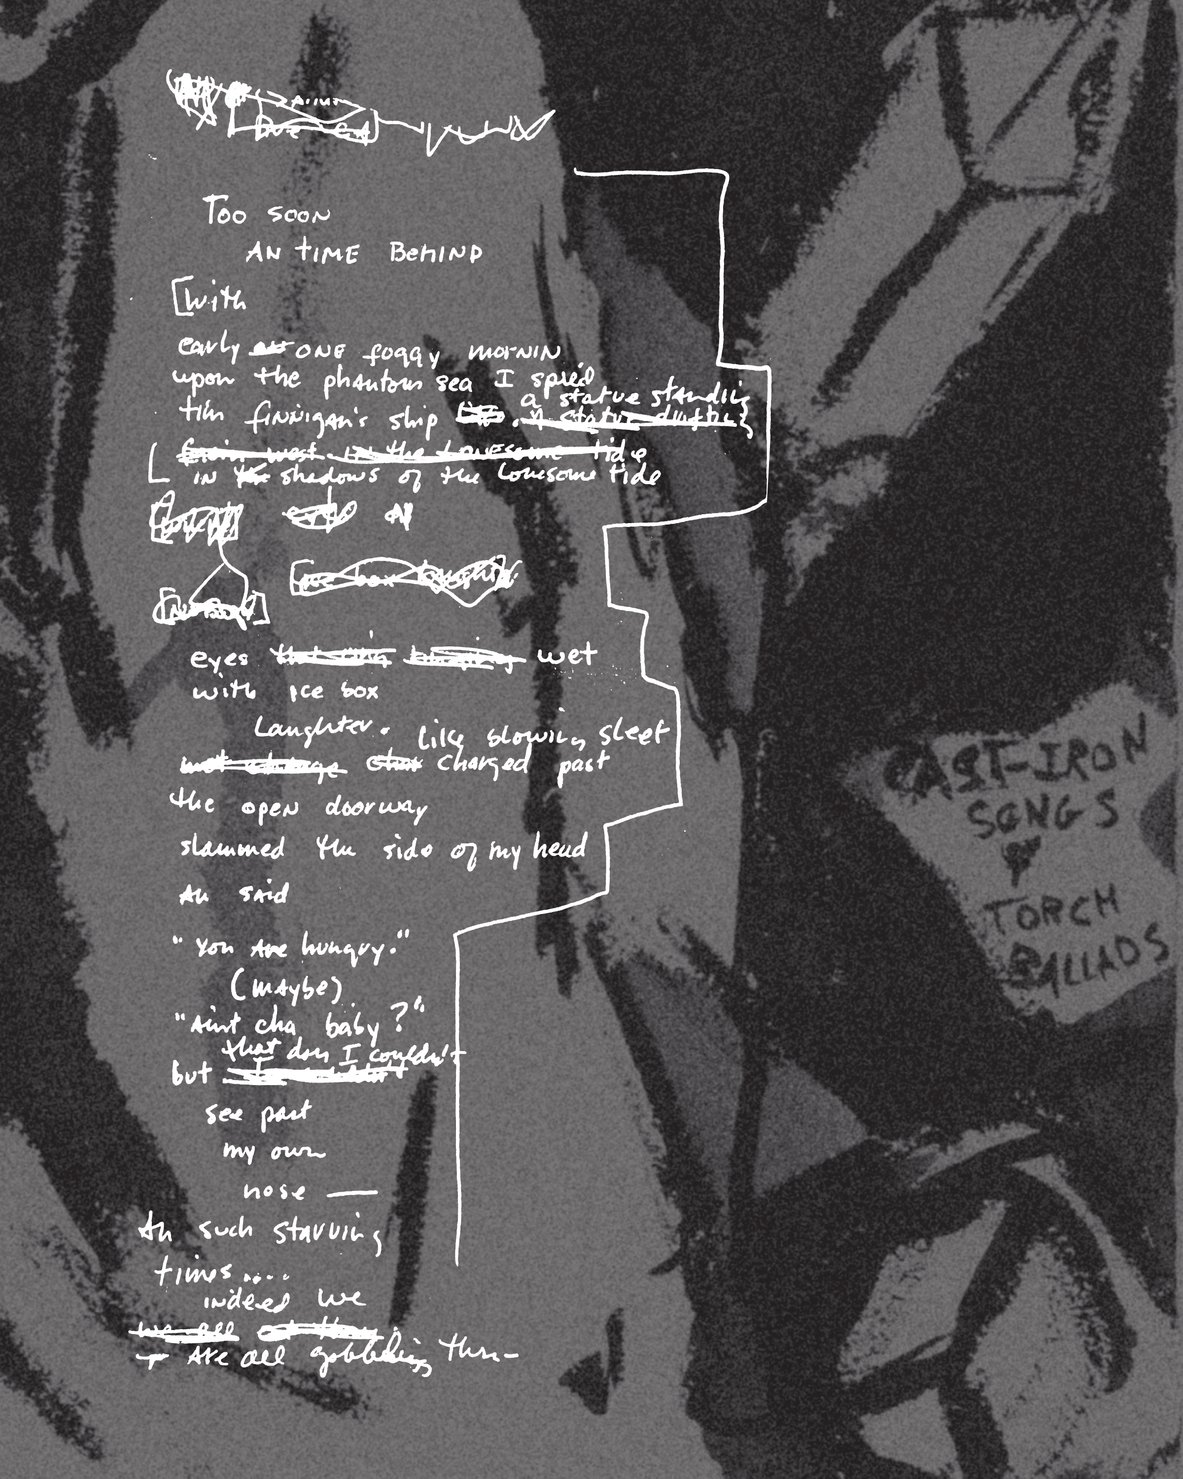 Too soon
AN tIME BEHIND
[with
early ONE foggy mornin
upon the phantom sea I spied
a statue standing
tim finnigan's ship
from west in the lonesome tide
in the shadows of the lonesome tide
ice box
eyes wet
with ice box
Laughter. like slowing sleet
charged past
the open doorway
slammed the side of my head
An said
"You are hungry."
(maybe)
"Aint cha baby?"
that day I couldn't
but
see past
my own
nose —
An such starving
times....
indeed we
we all
are all gobbling thru-
CAST-IRON
SONGS
&
TORCH
BALLADS